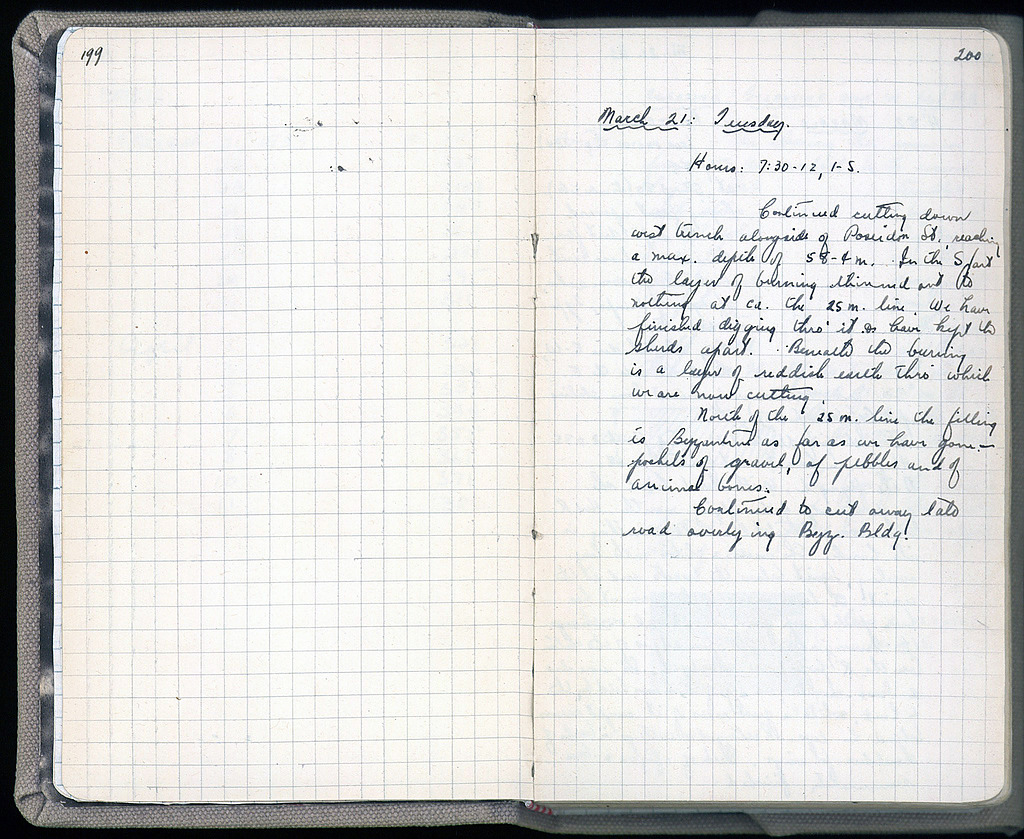 199
200
March 21: Tuesday.
Hours: 7:30-12, 1-5.
Continued cutting down
west trench alongside of Poseidon St., reaching
a max. depth of 58-4 m. In the S part
the layer of burning thinned out to
nothing at ca. the 25 m. line. We have
finished digging thro' it & have kept the
sherds apart. Beneath the burning
is a layer of reddish earth thro' which
we are now cutting.
North of the 25 m. line the filling
is Byzantine as far as we have gone —
pockets of gravel, of pebbles and of
animal bones.
Continued to cut away late
road overlying Byz. Bldg.